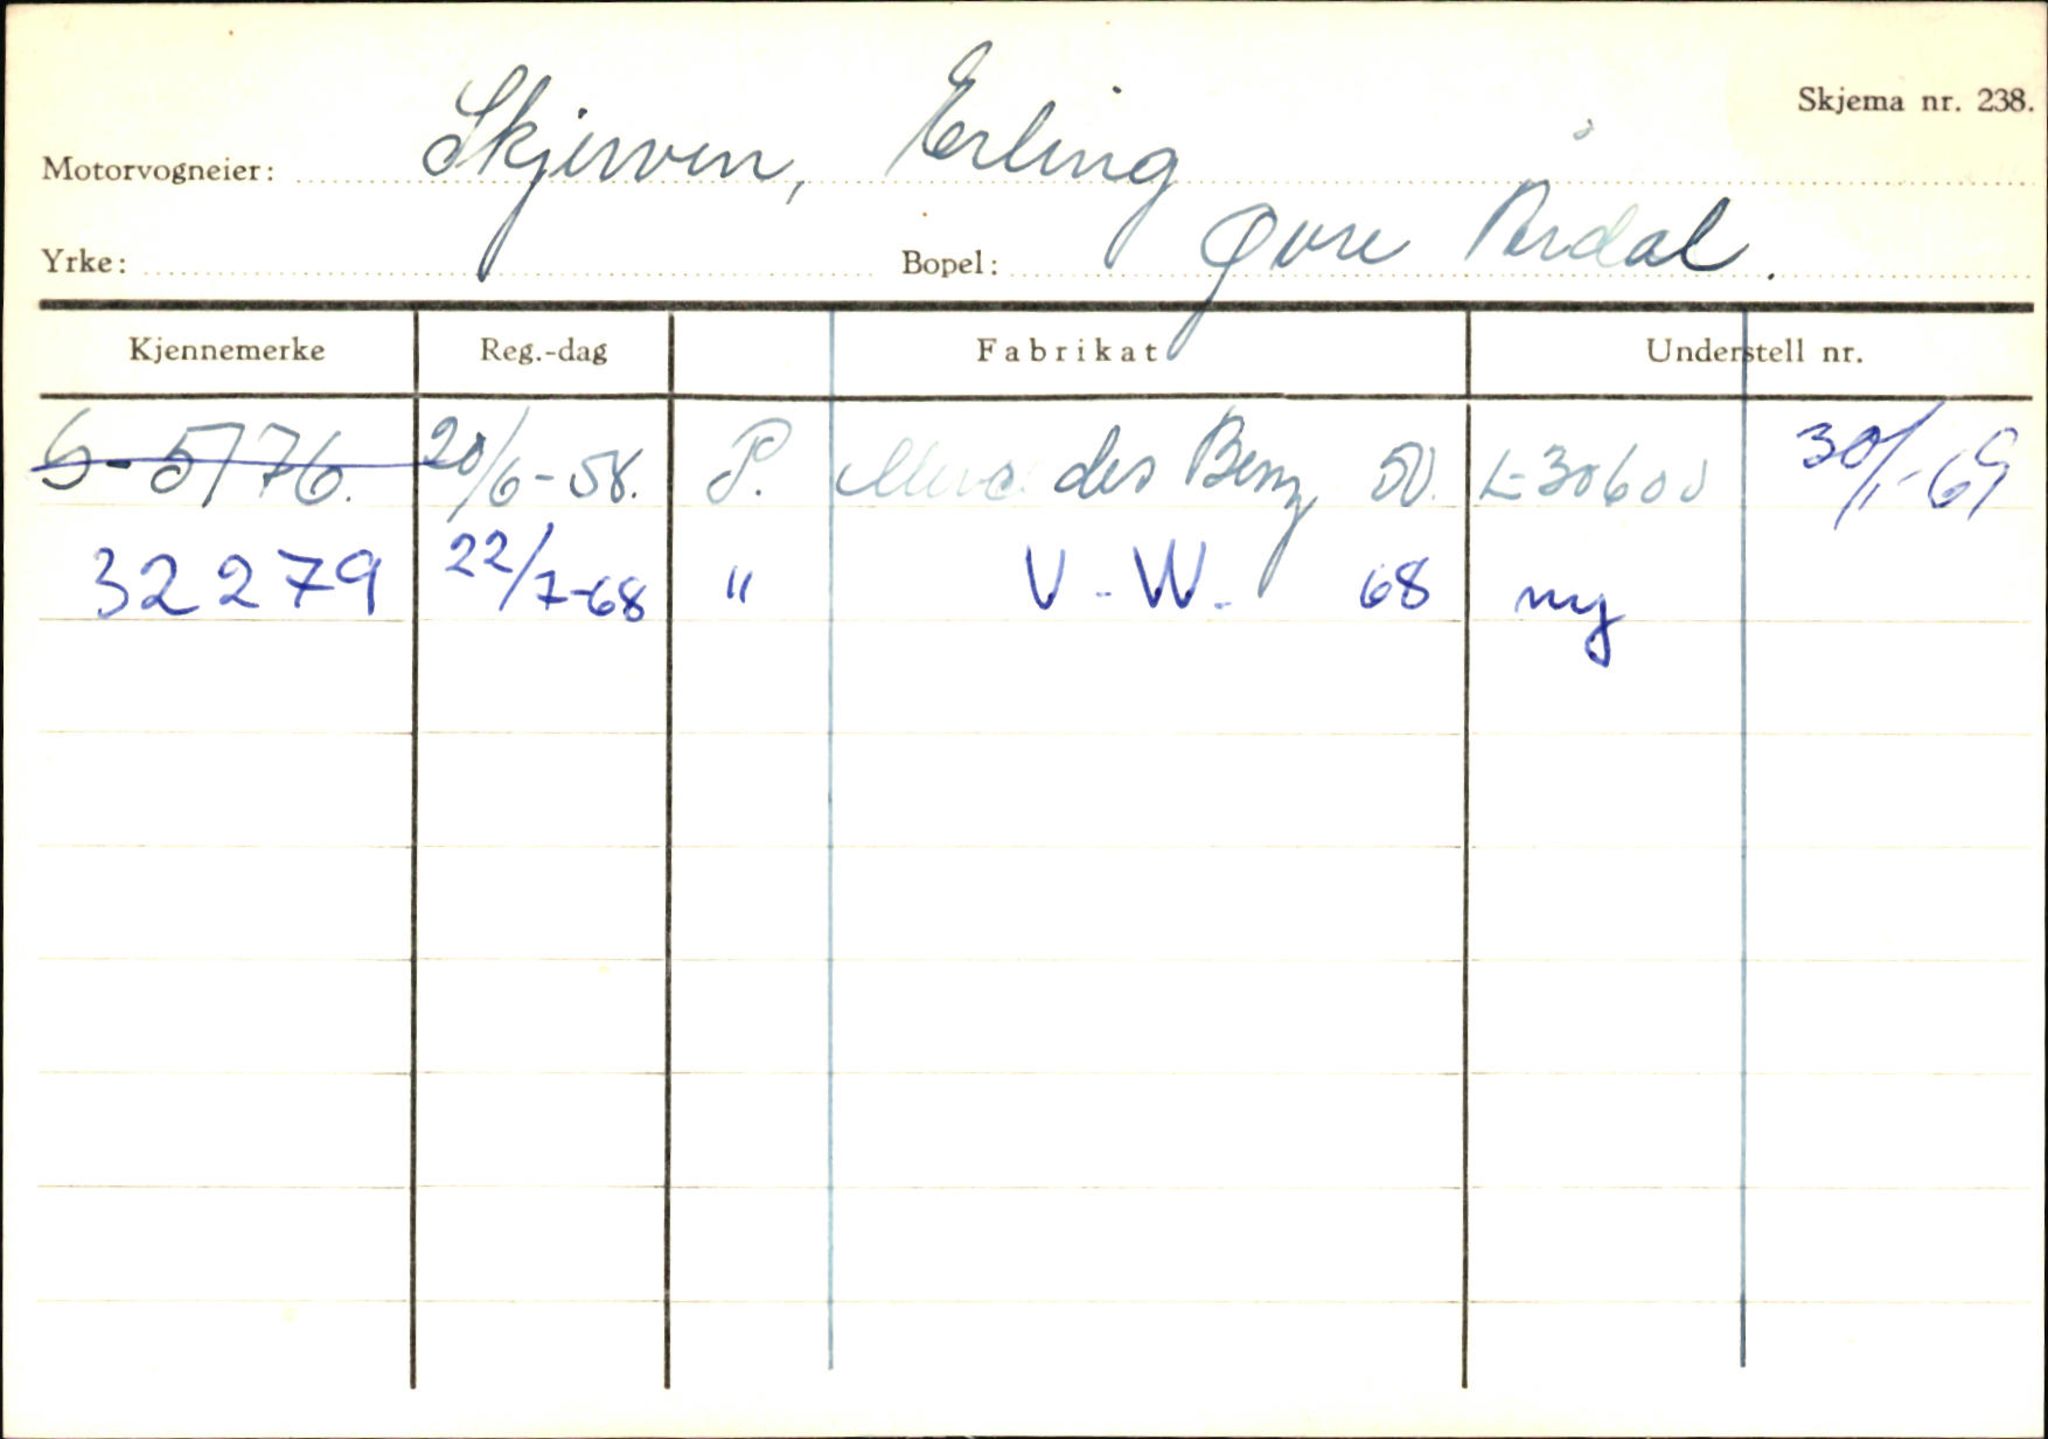 Skjema nr. 238.
Motorvogneier: Skjerven, Erling
Yrke: Bopel: Øvre Årdal.
Kjennemerke Reg.-dag Fabrikat Understell nr.
S-5176. 20/6-58. P. Mercedes Benz, 50. L-30600 30/1-69
32279 22/7-68 " V.W. 68 ny